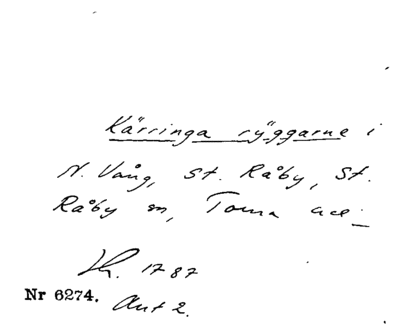 Kärringa ryggarne i
N. Vång, St. Råby, St.
Råby sn, Torna
1787
Nr 6274.
Akt 2.